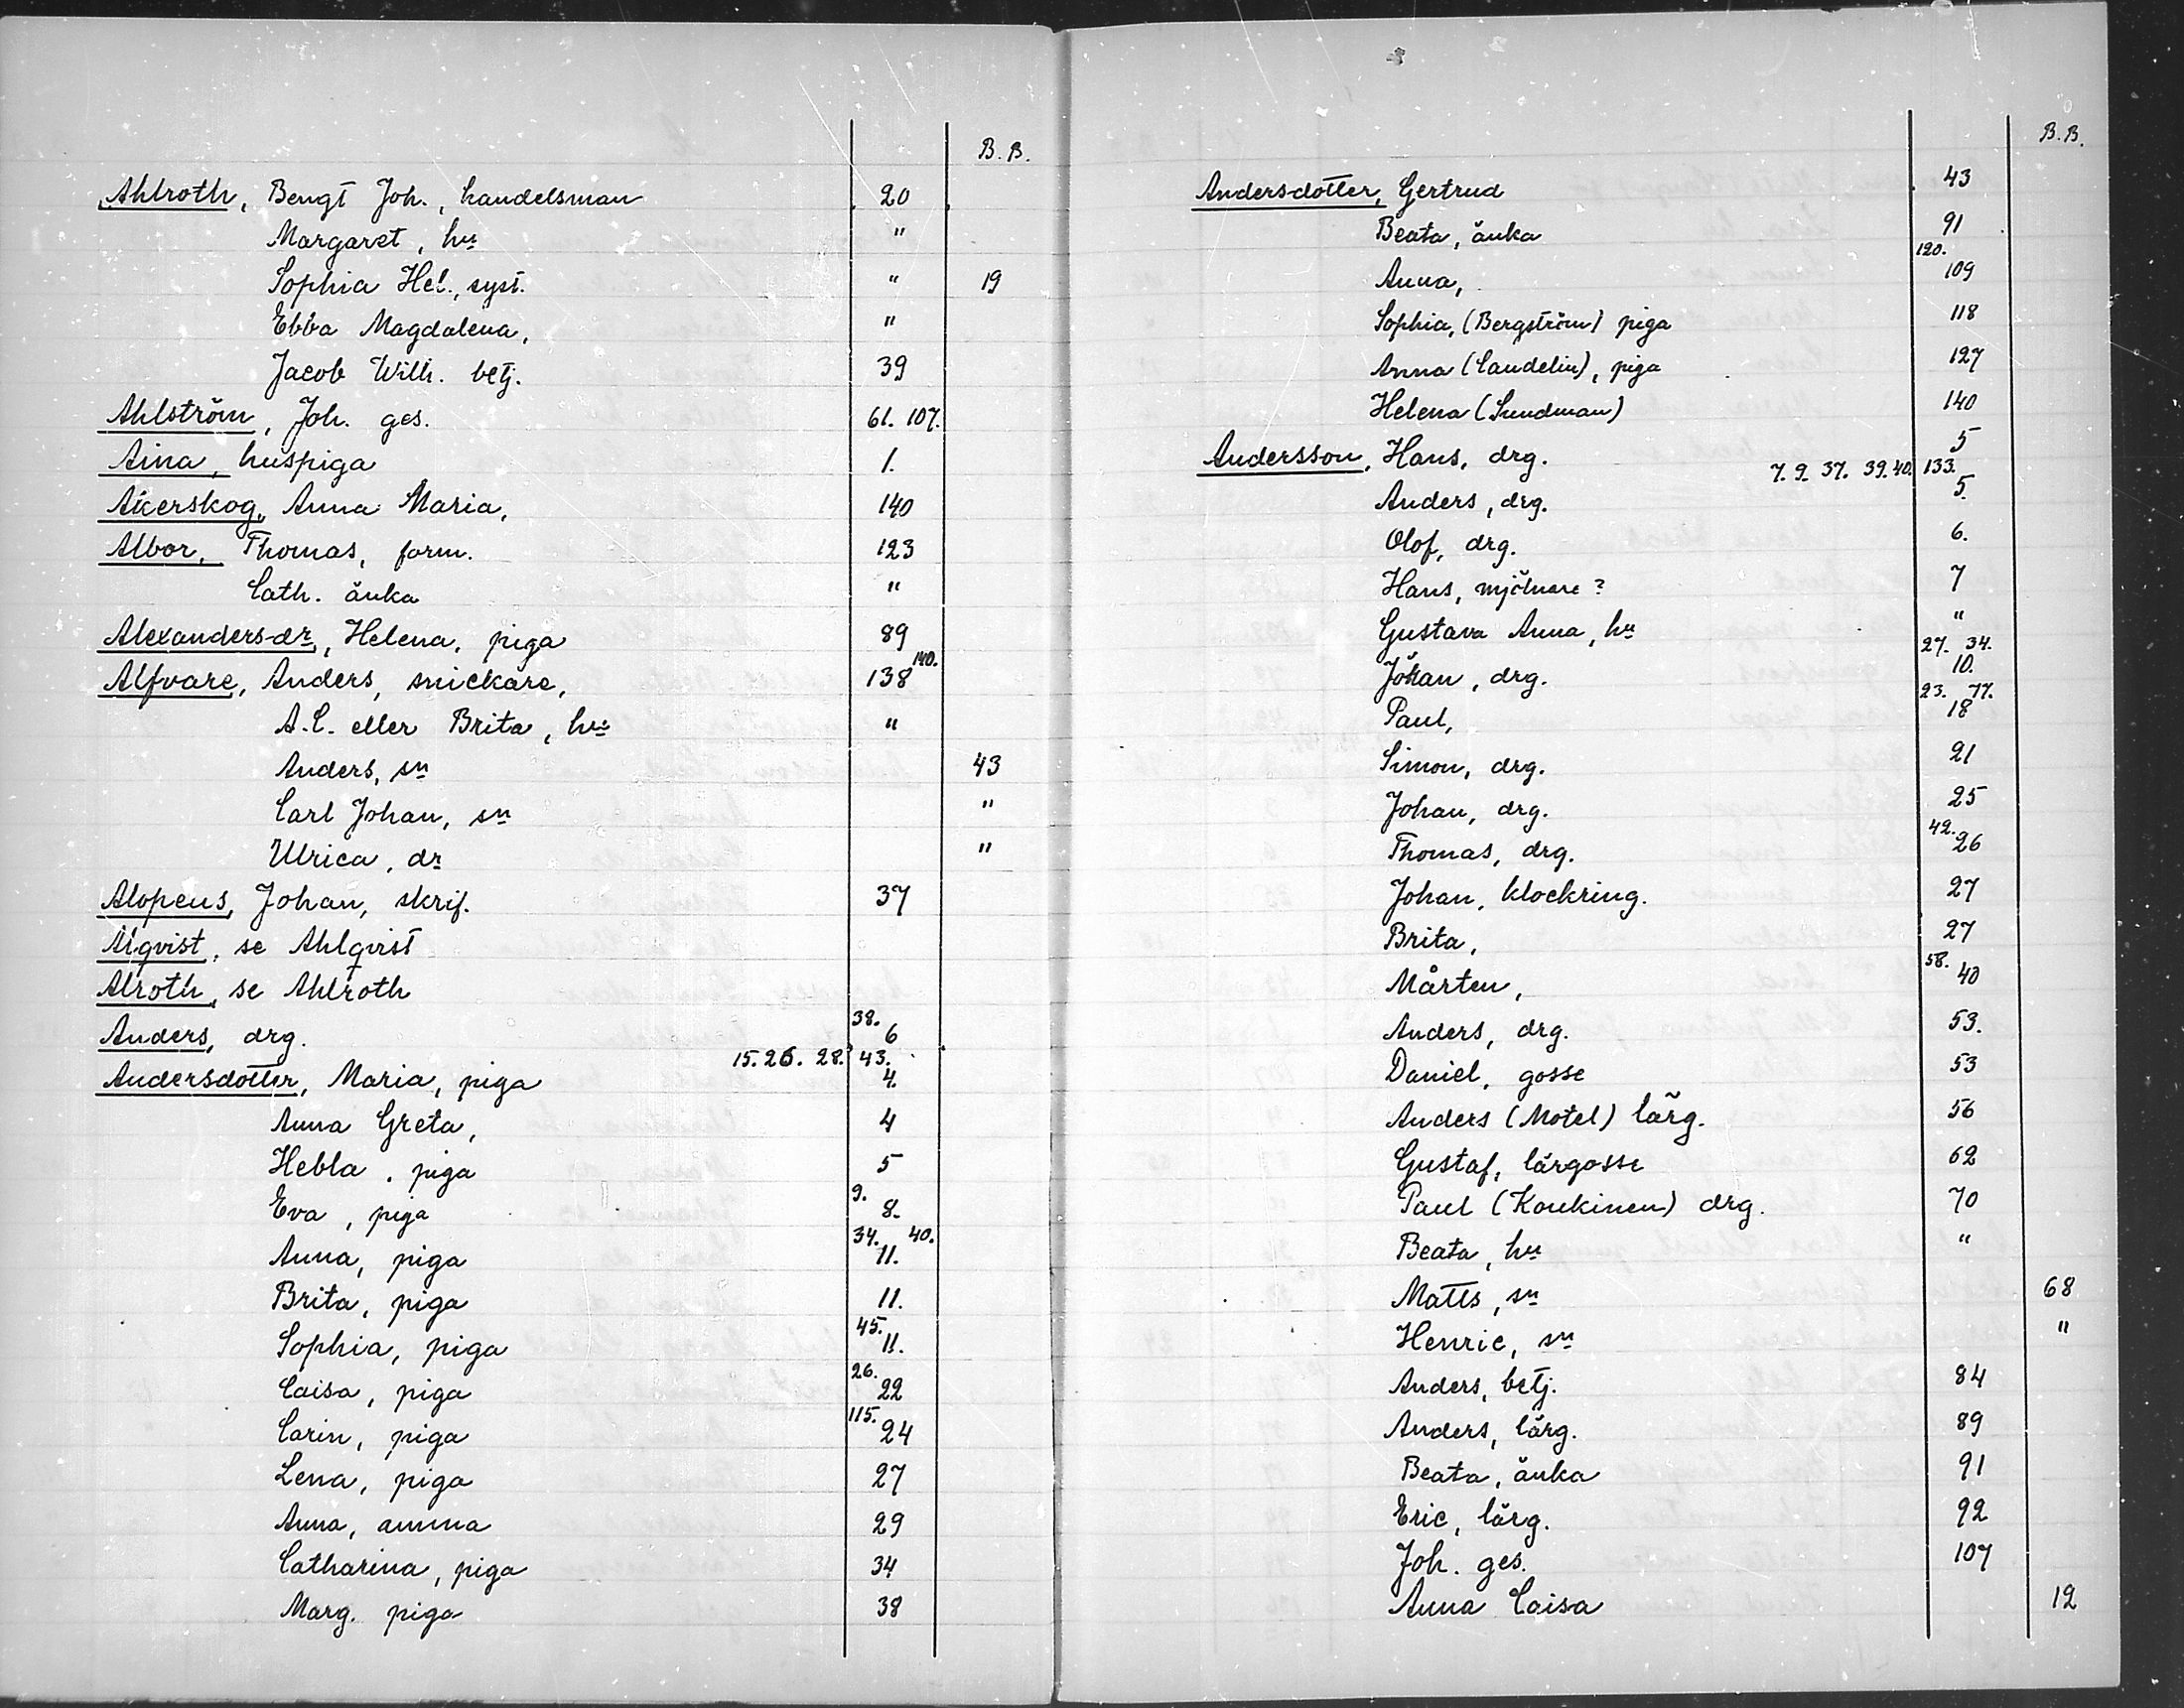 B.B.
Ahlroth, Bengt Joh., handelsman 20
Margaret, hu "
Sophia Hel., syst. " 19
Ebba Magdalena, "
Jacob Wilh. betj. 39
Ahlström, Joh. ges. 61. 107.
Aina, huspiga 1.
Åkerskog, Anna Maria, 140
Albor, Thomas, form. 123
Cath. änka "
Alexanders-dr, Helena, piga 89
Alfvare, Anders, snickare, 138 140.
A.C. eller Brita, hu "
Anders, sn 43
Carl Johan, sn "
Ulrica, dr "
Alopeus, Johan, skrif. 37
Alqvist, se Ahlqvist
Alroth, se Ahlroth
Anders, drg. 38. 6
Andersdotter, Maria, piga 15. 26. 28. 43. 4.
Anna Greta, 4
Hebla, piga 5
Eva, piga 9. 8.
Anna, piga 34. 40. 11.
Brita, piga 11.
Sophia, piga 45. 11.
Caisa, piga 26. 22
Carin, piga 115. 24
Lena, piga 27
Anna, amma 29
Catharina, piga 34
Marg. piga 38
B.B.
Andersdotter, Gertrud 43
Beata, änka 91
Anna, 120. 109
Sophia, (Bergström) piga 118
Anna (Landelin), piga 127
Helena (Sundman) 140
Andersson, Hans, drg. 5
Anders, drg. 7. 9. 37. 39. 40. 133. 5.
Olof, drg. 6.
Hans, mjölnare? 7
Gustava Anna, hu "
Johan, drg. 27. 34. 10.
Paul, 23. 77. 18
Simon, drg. 21
Johan, drg. 25
Thomas, drg. 42. 26
Johan, klockring. 27
Brita, 27
Mårten, 58. 40
Anders, drg. 53.
Daniel, gosse 53
Anders (Motel) lärg. 56
Gustaf, lärgosse 62
Paul (Koukinen) drg. 70
Beata, hu "
Matts, sn 68
Henric, sn "
Anders, betj. 84
Anders, lärg. 89
Beata, änka 91
Eric, lärg. 92
Joh. ges. 107
Anna Caisa 12